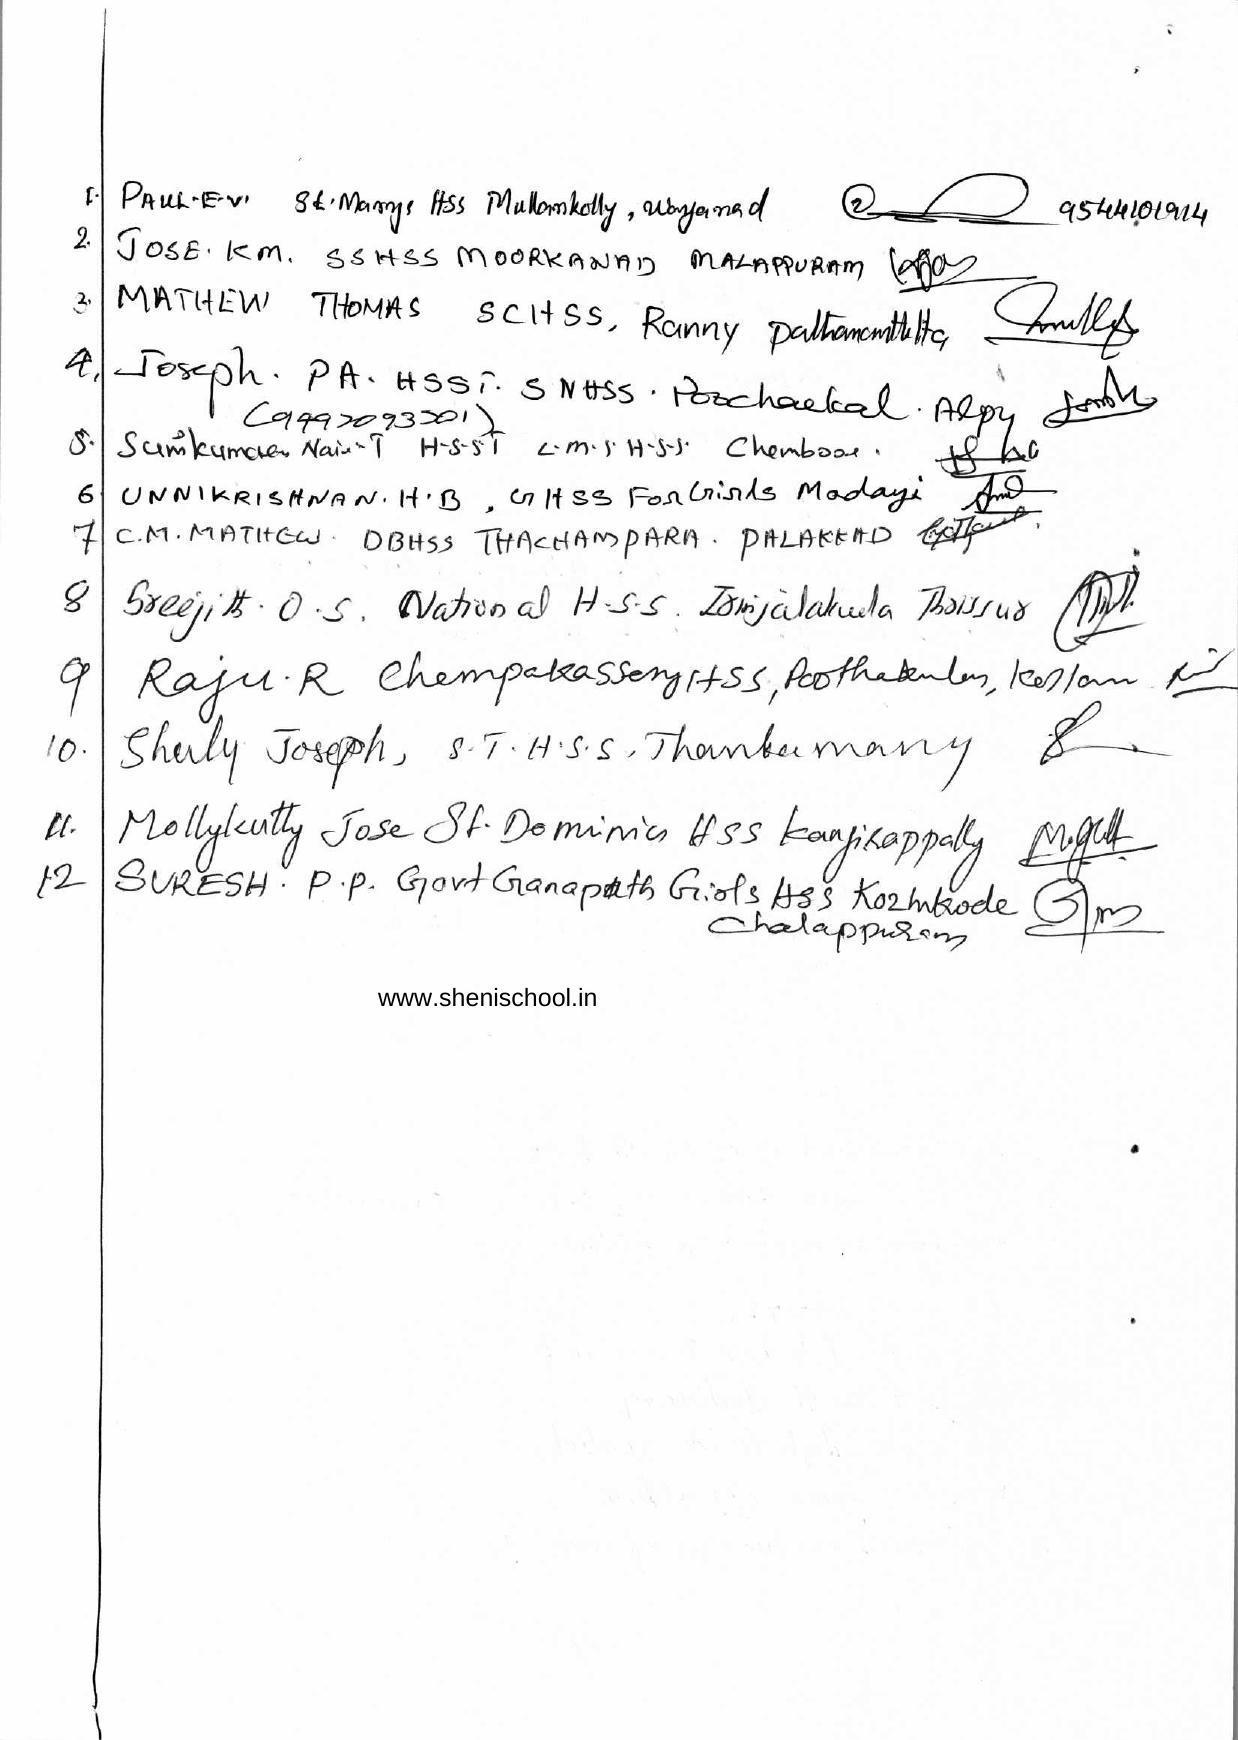 1. PAUL.E.V. St. Marys HSS Mullankolly, Wayanad 9544101914
2. JOSE. K.M. SSHSS MOORKANAD MALAPPURAM
3. MATHEW THOMAS SCHSS, Ranny Pathanamthitta
4. Joseph. PA. HSST. SNHSS. Poochackal. Alpy
(9997093201)
5. Nair-T H-S-S-T C.M.S H-S-S
6 UNNIKRISHNAN.H.B, GHSS For Girls Madayi
7 C.M. MATHEW. DBHSS THACHAMPARA. PALAKKAD
8 Sreejith. O.S. National H.S.S. Irinjalakuda Thrissur
9 Raju.R Chempakassery HSS, Poothakulam, Kollam
10. Sherly Joseph, S.T.H.S.S, Thankamany
11. Mollykutty Jose St. Dominics HSS Kanjirappally
12 SURESH. P.P. Govt Ganapath Girls HSS Kozhikode
Chalappuram
www.shenischool.in